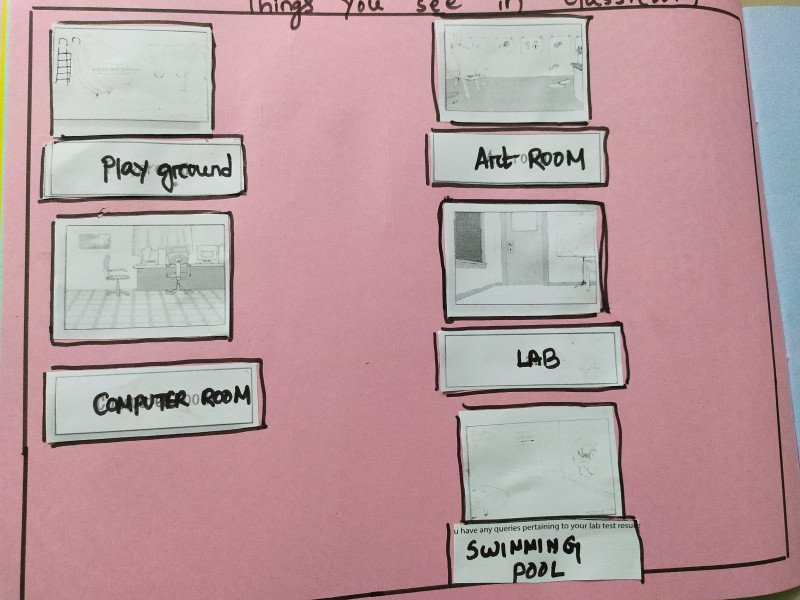 Things you see in classroom
Play ground
Art ROOM
COMPUTER ROOM
LAB
u have any queries pertaining to your lab test resul
SWINMING
POOL